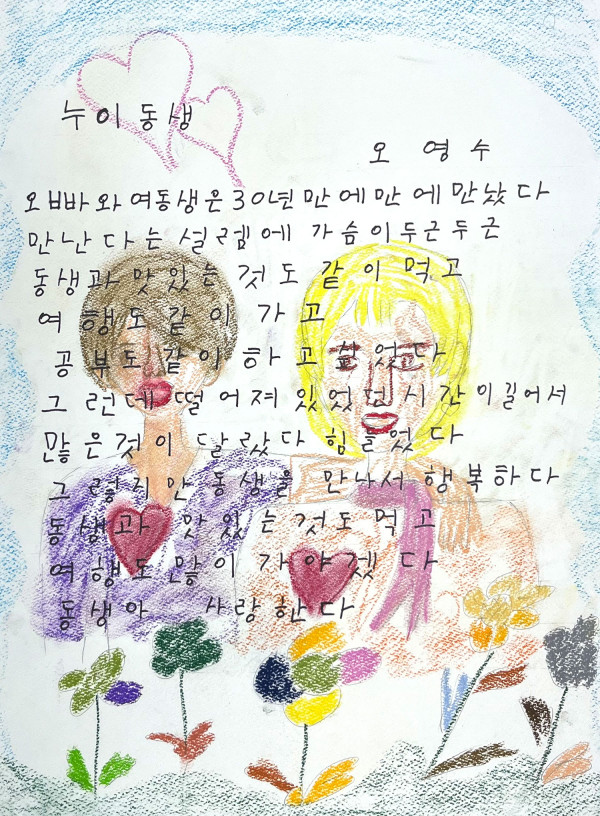 누이동생
오 영 수
오빠와 여동생은 30년만에만에만났다
만난다는 설레엠에 가슴이두근두근
동생과 맛있는 것도 같이 먹고
여행도 같이 가고
공부도 같이 하고싶었다
그런데 떨어져있었던시간이길어서
많은것이 달랐다 힘들었다
그렇지만 동생을 만나서 행복하다
동생과 맛있는것도먹고
여행도많이 가야겠다
동생아 사랑한다